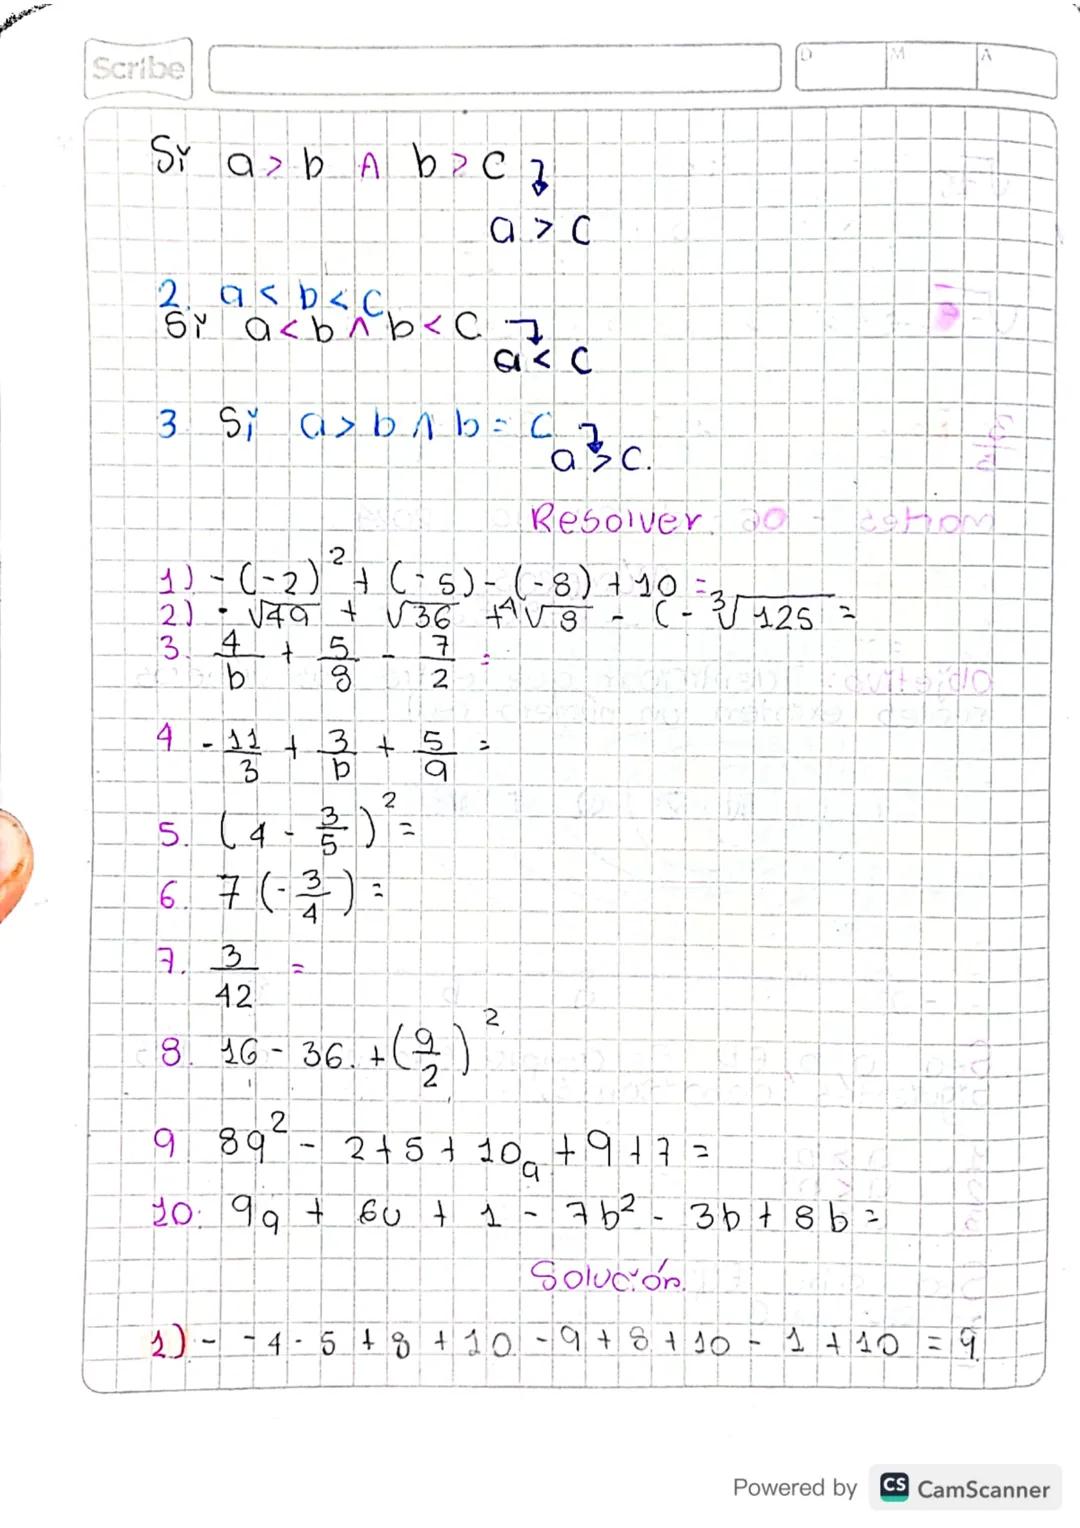 Scribe
D M A
Si a > b ∧ b > c ↴
a > c
2. a < b < c
Si a < b ∧ b < c ↴
a < c
3 Si a > b ∧ b = c ↴
a > c.
Resolver.
1) -(-2)² + (-5) - (-8) + 10 =
2) - √49 + √36 + ⁴√8 - (-³√125 =
3. 4/b + 5/8 - 7/2 =
4 - 11/3 + 3/b + 5/9 =
5. (4 - 3/5)² =
6. 7 (-3/4) =
7. 3/42 =
8. 16 - 36. + (9/2)²
9 8a² - 2 + 5 + 10a + 9 + 7 =
10. 9a + 6a + 1 - 7b² - 3b + 8b =
Solución.
1) - -4 - 5 + 8 + 10 - 9 + 8 + 10 - 1 + 10 = 9.
Powered by CS CamScanner